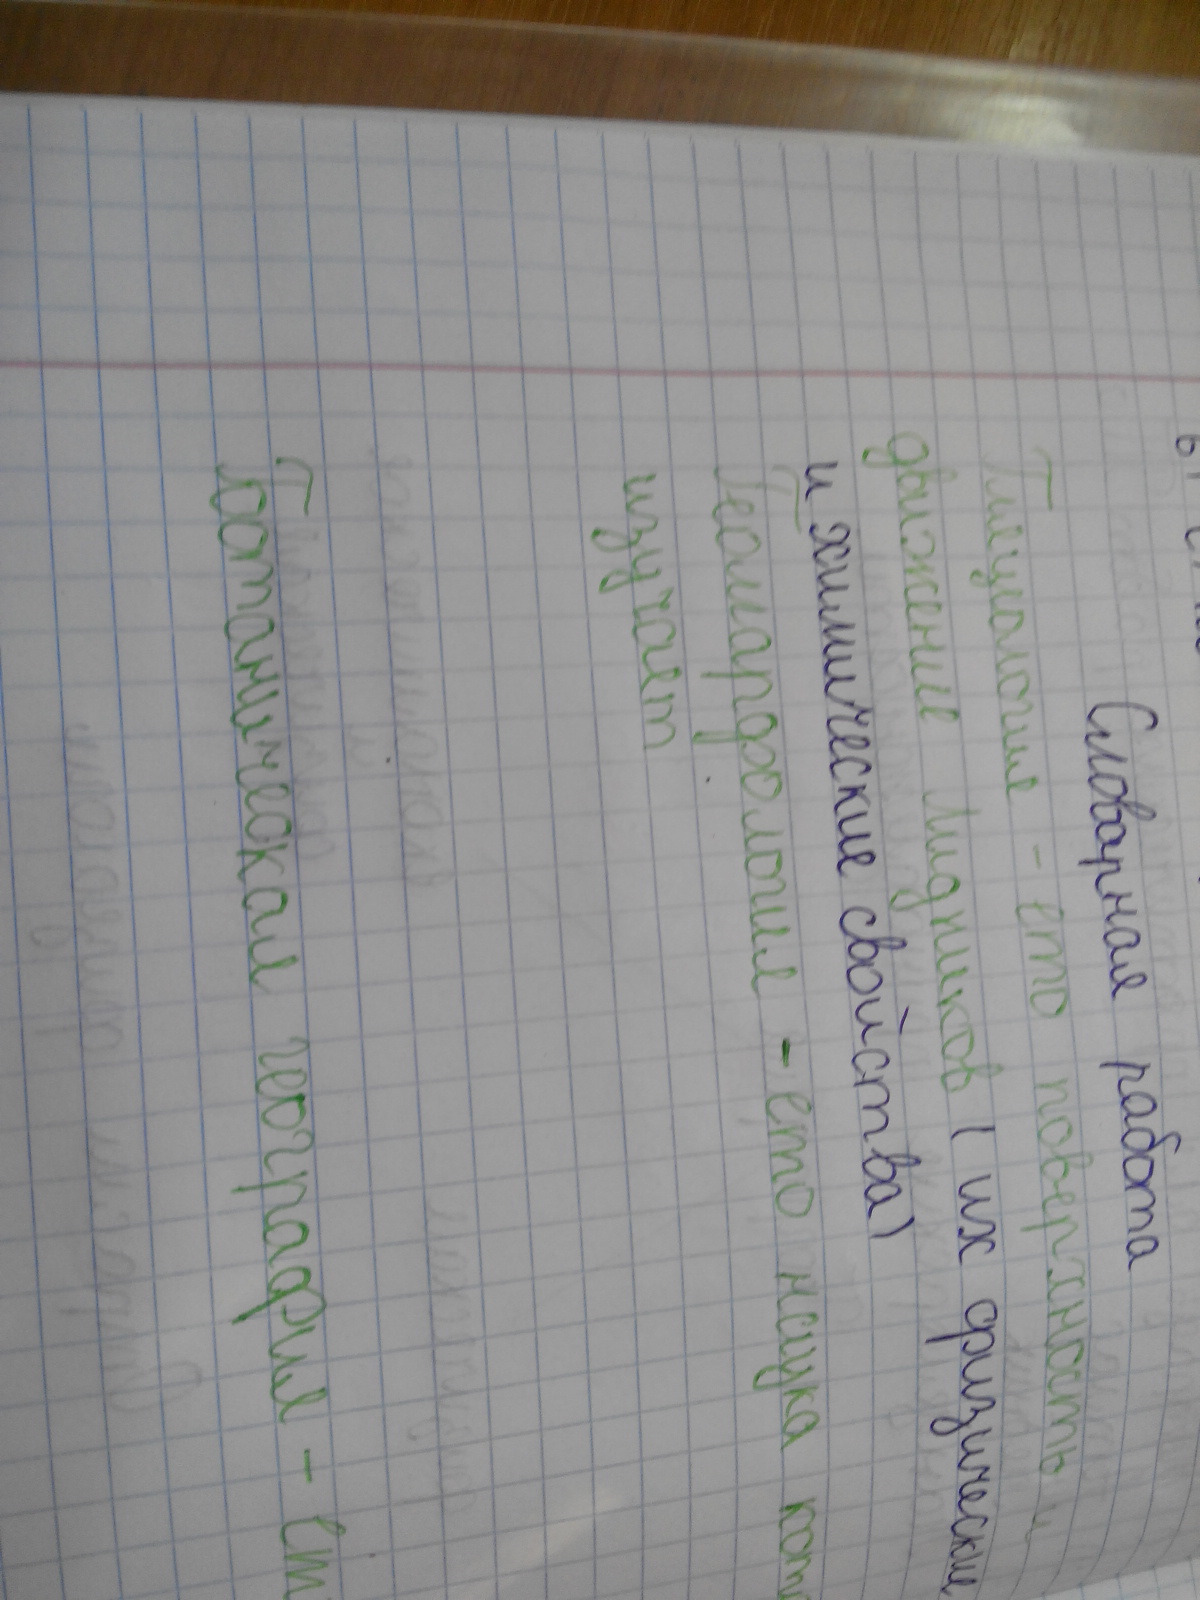 Словарная работа
Гляциология - ето поверхность и
движение лидников ( их физические
и химические свойства)
Геоморфология - ето наука кот
изучает
Ботаническая география - ет